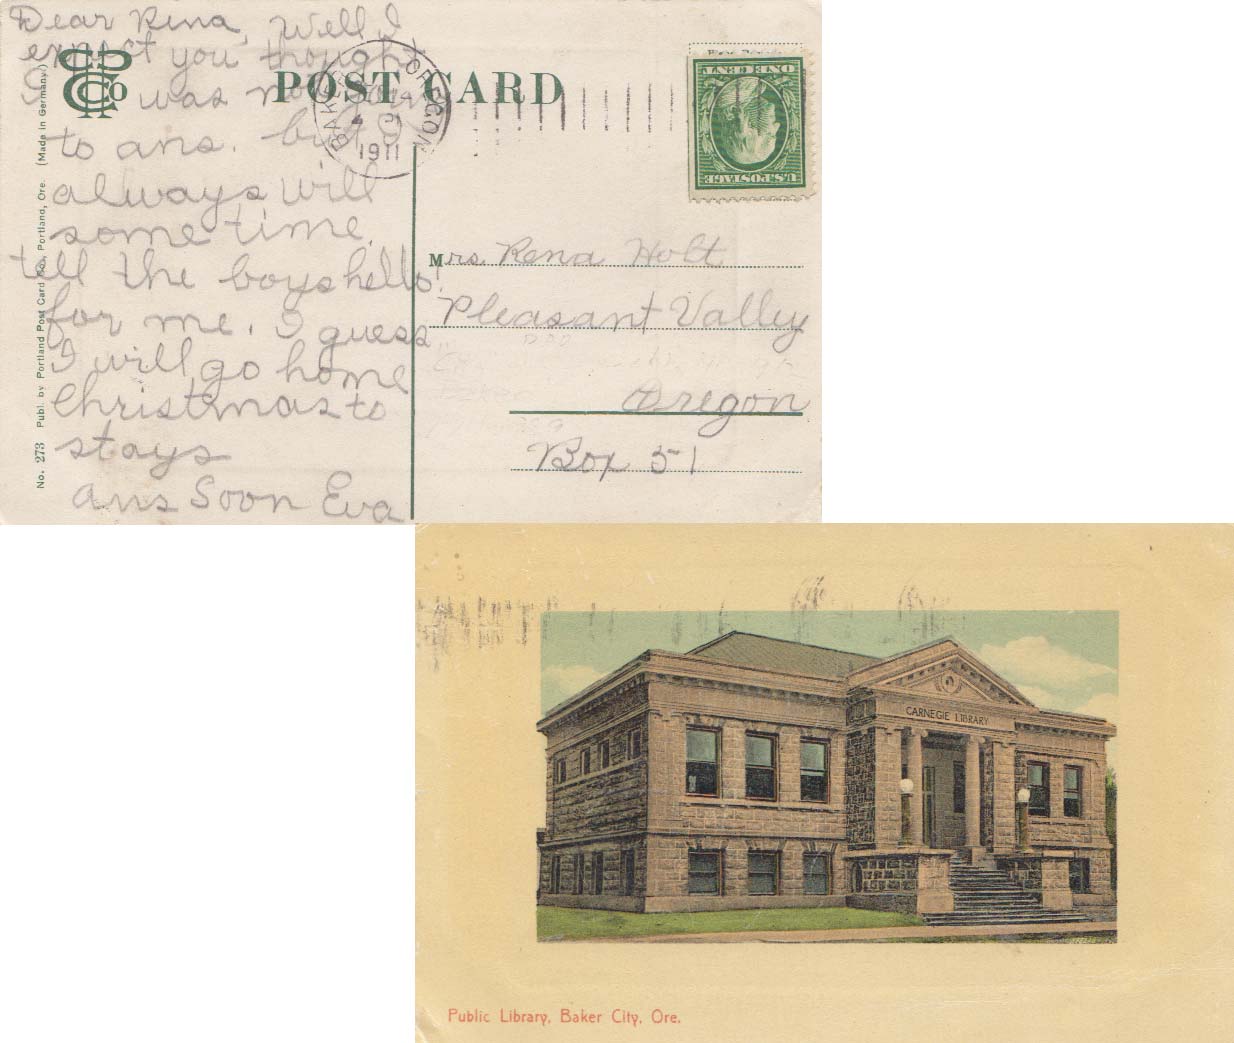 Dear Rena, Well I
expect you thought
I was not going
to ans. but I
always will
some time.
tell the boys hello
for me. I guess
I will go home
Christmas to
stay
ans Soon Eva
No. 273 Publ. by Portland Post Card Co., Portland, Ore. (Made in Germany.)
POST CARD
BAKER OREGON
1911
ONE CENT
U.S. POSTAGE
Mrs. Rena Holt
Pleasant Valley
Oregon
Box 51
CARNEGIE LIBRARY
Public Library, Baker City, Ore.